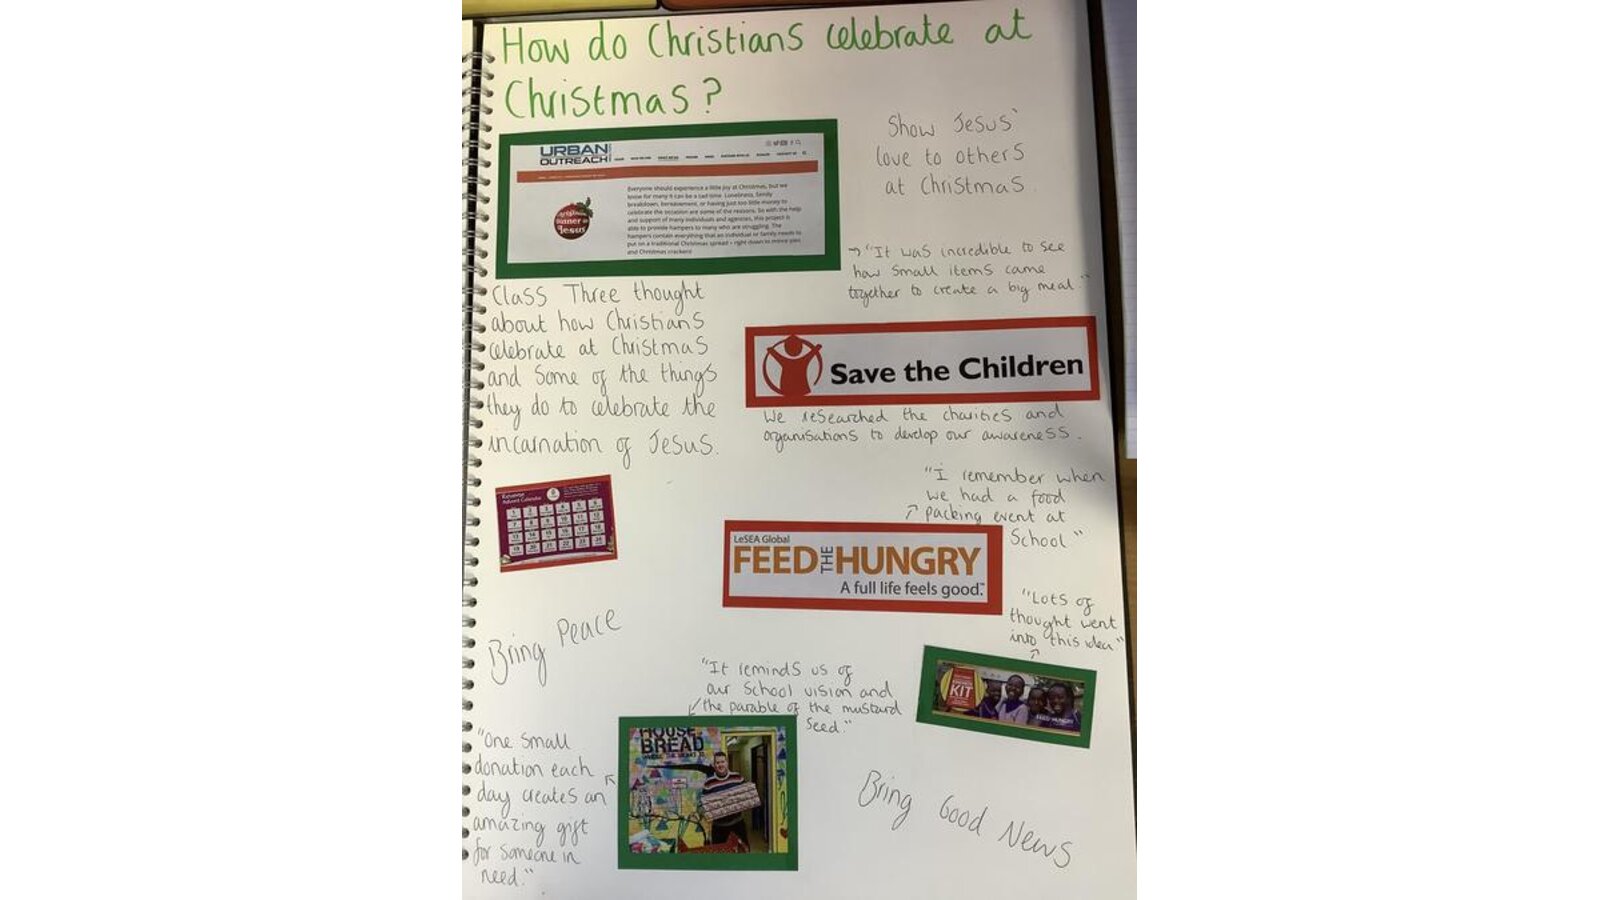 How do Christians celebrate at
Christmas?
URBAN
OUTREACH
Everyone should experience a little joy at Christmas, but we
know for many it can be a sad time. Loneliness, family
breakdown, bereavement, or having just too little money to
celebrate the occasion are some of the reasons. So with the help
and support of many individuals and agencies, this project is
able to provide hampers to many who are struggling. The
hampers contain everything that an individual or family needs to
put on a traditional Christmas spread – right down to mince pies
and Christmas crackers!
Christmas
Dinner
Jesus
Show Jesus'
love to others
at Christmas.
→ "It was incredible to see
how small items came
together to create a big meal."
Class Three thought
about how Christians
celebrate at Christmas
and some of the things
they do to celebrate the
incarnation of Jesus.
Save the Children
We researched the charities and
organisations to develop our awareness.
"I remember when
we had a food
packing event at
School"
Reverse
Advent Calendar
1 2 3 4 5 6
7 8 9 10 11 12
13 14 15 16 17 18
19 20 21 22 23 24
LeSEA Global
FEED THE HUNGRY
A full life feels good.™
"Lots of
thought went
into this idea"
Bring Peace
"It reminds us of
our school vision and
the parable of the mustard
Seed."
KIT
FEED THE HUNGRY
HOUSE
BREAD
"One small
donation each
day creates an
amazing gift
for someone in
need."
Bring Good News